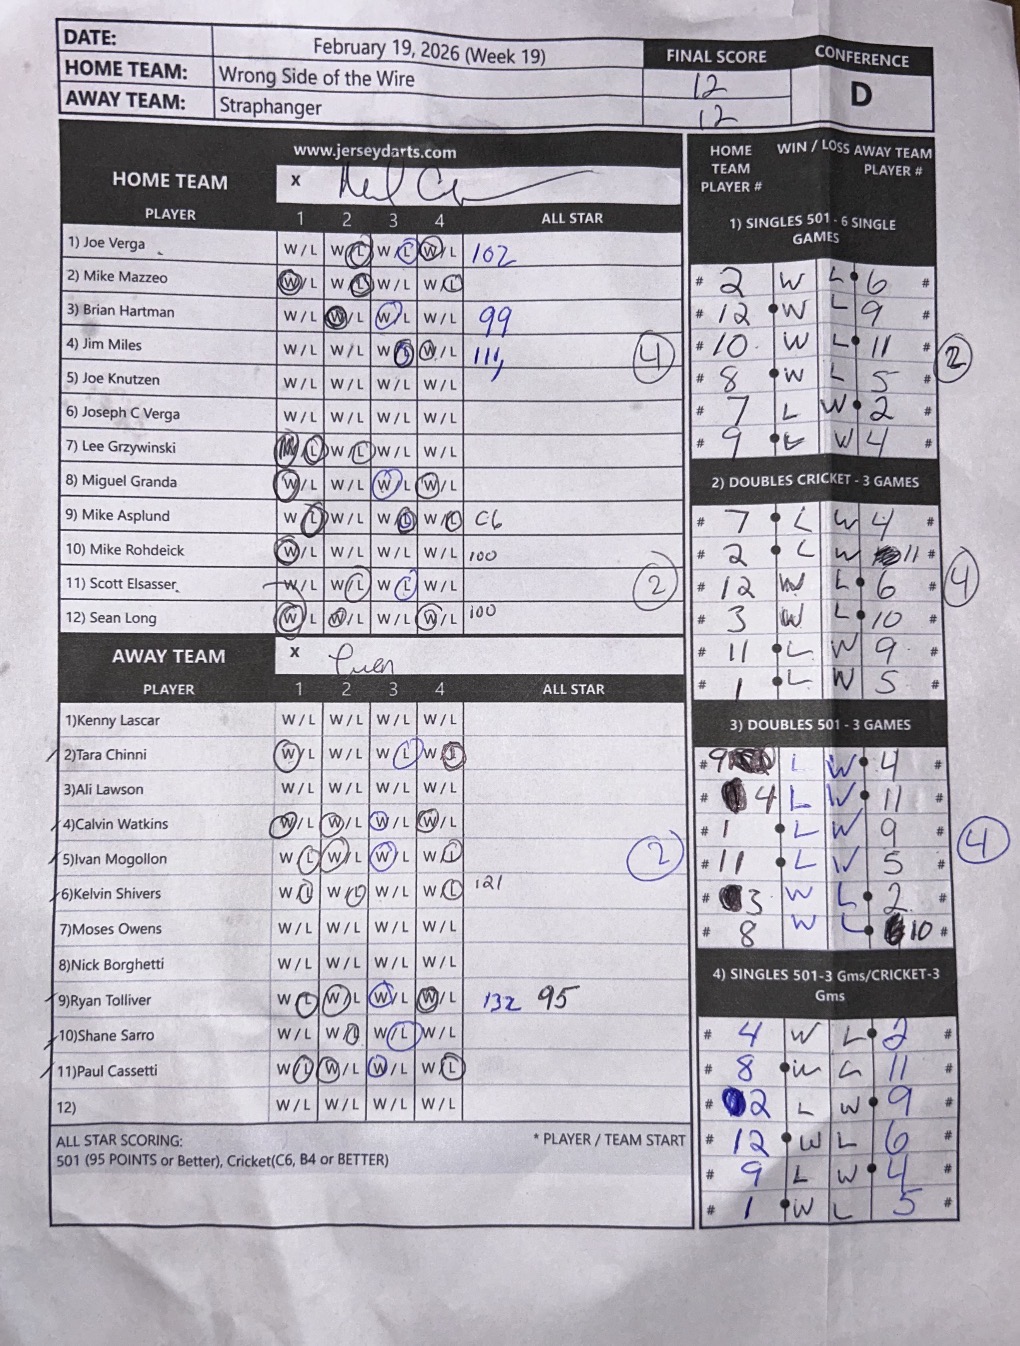 DATE: February 19, 2026 (Week 19) FINAL SCORE CONFERENCE
HOME TEAM: Wrong Side of the Wire 12 D
AWAY TEAM: Straphanger 12
www.jerseydarts.com
HOME TEAM X
PLAYER 1 2 3 4 ALL STAR
1) Joe Verga W/L W/L W/L W/L 102
2) Mike Mazzeo W/L W/L W/L W/L
3) Brian Hartman W/L W/L W/L W/L 99
4) Jim Miles W/L W/L W/L W/L 111 4
5) Joe Knutzen W/L W/L W/L W/L
6) Joseph C Verga W/L W/L W/L W/L
7) Lee Grzywinski W/L W/L
8) Miguel Granda W/L W/L W/L W/L
9) Mike Asplund W/L W/L W/L W/L C6
10) Mike Rohdeick W/L W/L W/L W/L 100
11) Scott Elsasser W/L W/L W/L W/L 2
12) Sean Long W/L W/L W/L W/L 100
AWAY TEAM X
PLAYER 1 2 3 4 ALL STAR
1)Kenny Lascar W/L W/L W/L W/L
2)Tara Chinni W/L W/L W/L W/L
3)Ali Lawson W/L W/L W/L W/L
4)Calvin Watkins W/L W/L W/L W/L
5)Ivan Mogollon W/L W/L W/L W/L 2
6)Kelvin Shivers W/L W/L W/L W/L 121
7)Moses Owens W/L W/L W/L W/L
8)Nick Borghetti W/L W/L W/L W/L
9)Ryan Tolliver W/L W/L W/L W/L 132 95
10)Shane Sarro W/L W/L W/L W/L
11)Paul Cassetti W/L W/L W/L W/L
12) W/L W/L W/L W/L
ALL STAR SCORING: * PLAYER / TEAM START
501 (95 POINTS or Better), Cricket(C6, B4 or BETTER)
HOME TEAM PLAYER # WIN / LOSS AWAY TEAM PLAYER #
1) SINGLES 501 - 6 SINGLE
GAMES
# 2 W L 6 #
# 12 W L 9 #
# 10 W L 11 # 2
# 8 W L 5 #
# 7 L W 2 #
# 9 L W 4 #
2) DOUBLES CRICKET - 3 GAMES
# 7 L W 4 #
# 2 L W 11 #
# 12 W L 6 # 4
# 3 W L 10 #
# 11 L W 9 #
# 1 L W 5 #
3) DOUBLES 501 - 3 GAMES
# 9 L W 4 #
# 4 L W 11 #
# 1 L W 9 # 4
# 11 L W 5 #
# 3 W L 2 #
# 8 W L 10 #
4) SINGLES 501-3 Gms/CRICKET-3
Gms
# 4 W L 2 #
# 8 W L 11 #
# 2 L W 9 #
# 12 W L 6 #
# 9 L W 4 #
# 1 W L 5 #